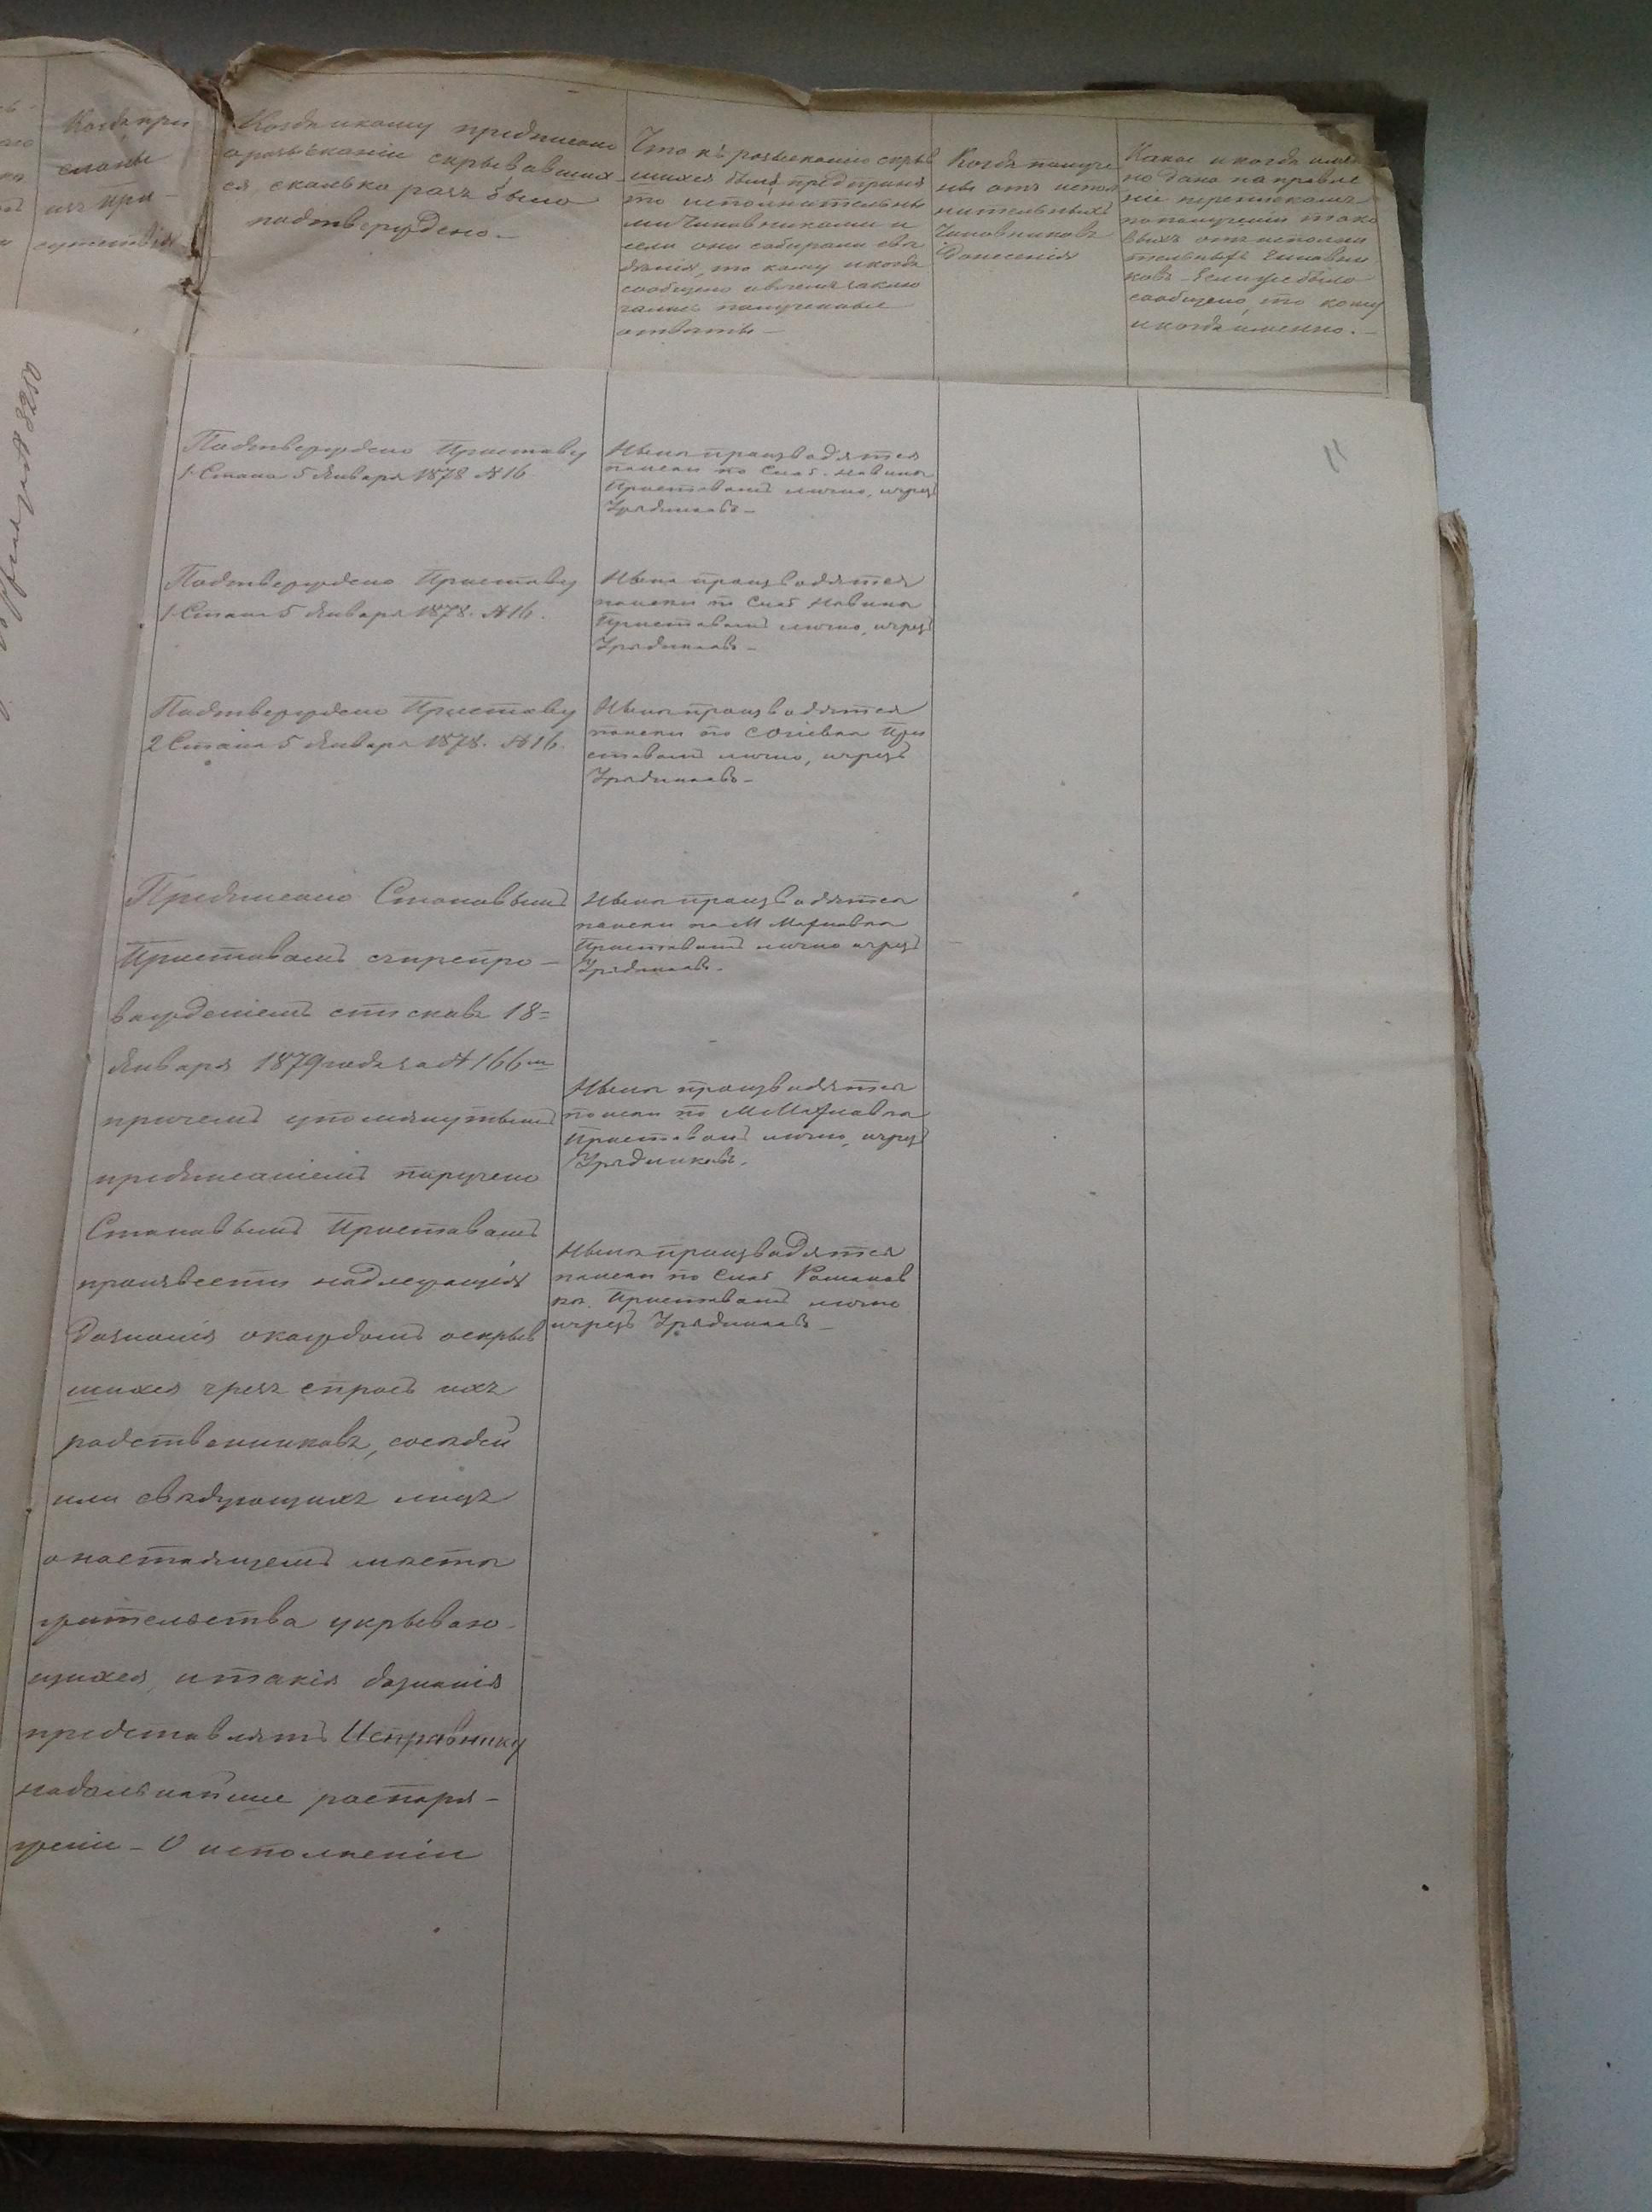 Когда при
сланы
изъ при-
сутствія
Когда и кому предписано
о розысканіи скрывавших
ся, сколько разъ было
подтверждено.-
Что къ розысканію скрыв
шихся было предприня
то исполнительны
ми Чиновниками и
если они собирали свѣ
дѣнія, то кому и когда
сообщено и въ чемъ заклю
чались полученные
отвѣты -
Когда получе
ны отъ испол
нительныхъ
Чиновниковъ
Донесенія
Какое и когда имен
но дано направле
ніе перепискамъ
по полученіи тако
выхъ отъ исполни
тельныхъ Чиновни
ковъ. Если уже было
сообщено, то кому
и когда именно. -
11
Подтверждено Приставу
1. Стана 5 Января 1878 № 16
Нынѣ производятся
поиски по Слоб.
Приставомъ лично, и чрезъ
Урядниковъ. -
Подтверждено Приставу
1. Стана 5 Января 1878. № 16.
Нынѣ производятся
поиски по Слоб.
Приставомъ лично, и чрезъ
Урядниковъ. -
Подтверждено Приставу
2 Стана 5 Января 1878. № 16.
Нынѣ производятся
поиски по При
ставомъ лично, и чрезъ
Урядниковъ. -
Предписано Становымъ
Приставамъ съ препро-
вожденіемъ списковъ 18=
Января 1879 года за № 166 м
причемъ упомянутымъ
предписаніемъ поручено
Становымъ Приставамъ
произвести надлежащія
дознанія о каждомъ о скрыв
шихся чрезъ спросъ ихъ
родственниковъ, сосѣдей
или свѣдующихъ лицъ
о настоящемъ мѣстѣ
жительства укрываю-
щихся, и такія дознанія
представлять Исправнику
на дальнѣйшее распоря-
женіе - О исполненіи
Нынѣ производятся
поиски по М.
Приставомъ лично и чрезъ
Урядниковъ.
Нынѣ производятся
поиски по М.
Приставомъ лично, и чрезъ
Урядниковъ.
Нынѣ производятся
поиски по Слоб. Романов
кѣ. Приставомъ лично
и чрезъ Урядниковъ -